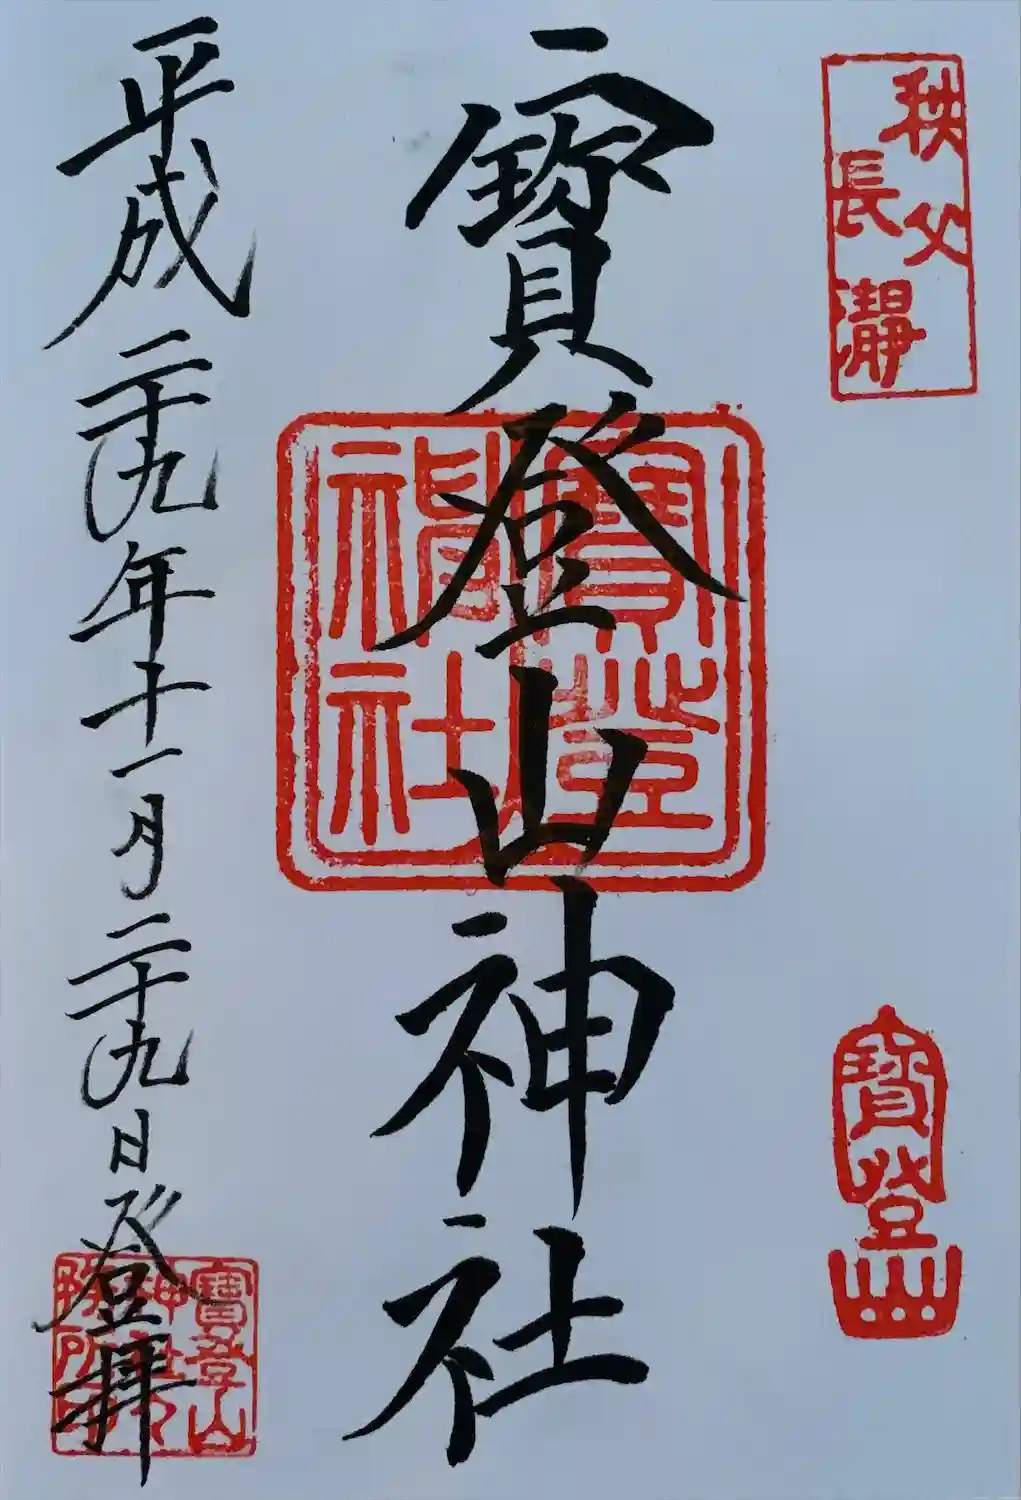 秩父
長瀞
寶登山
寶登山神社
寶登
神社
平成二十九年十一月二十九日登拝
寶登山
神社
務所印